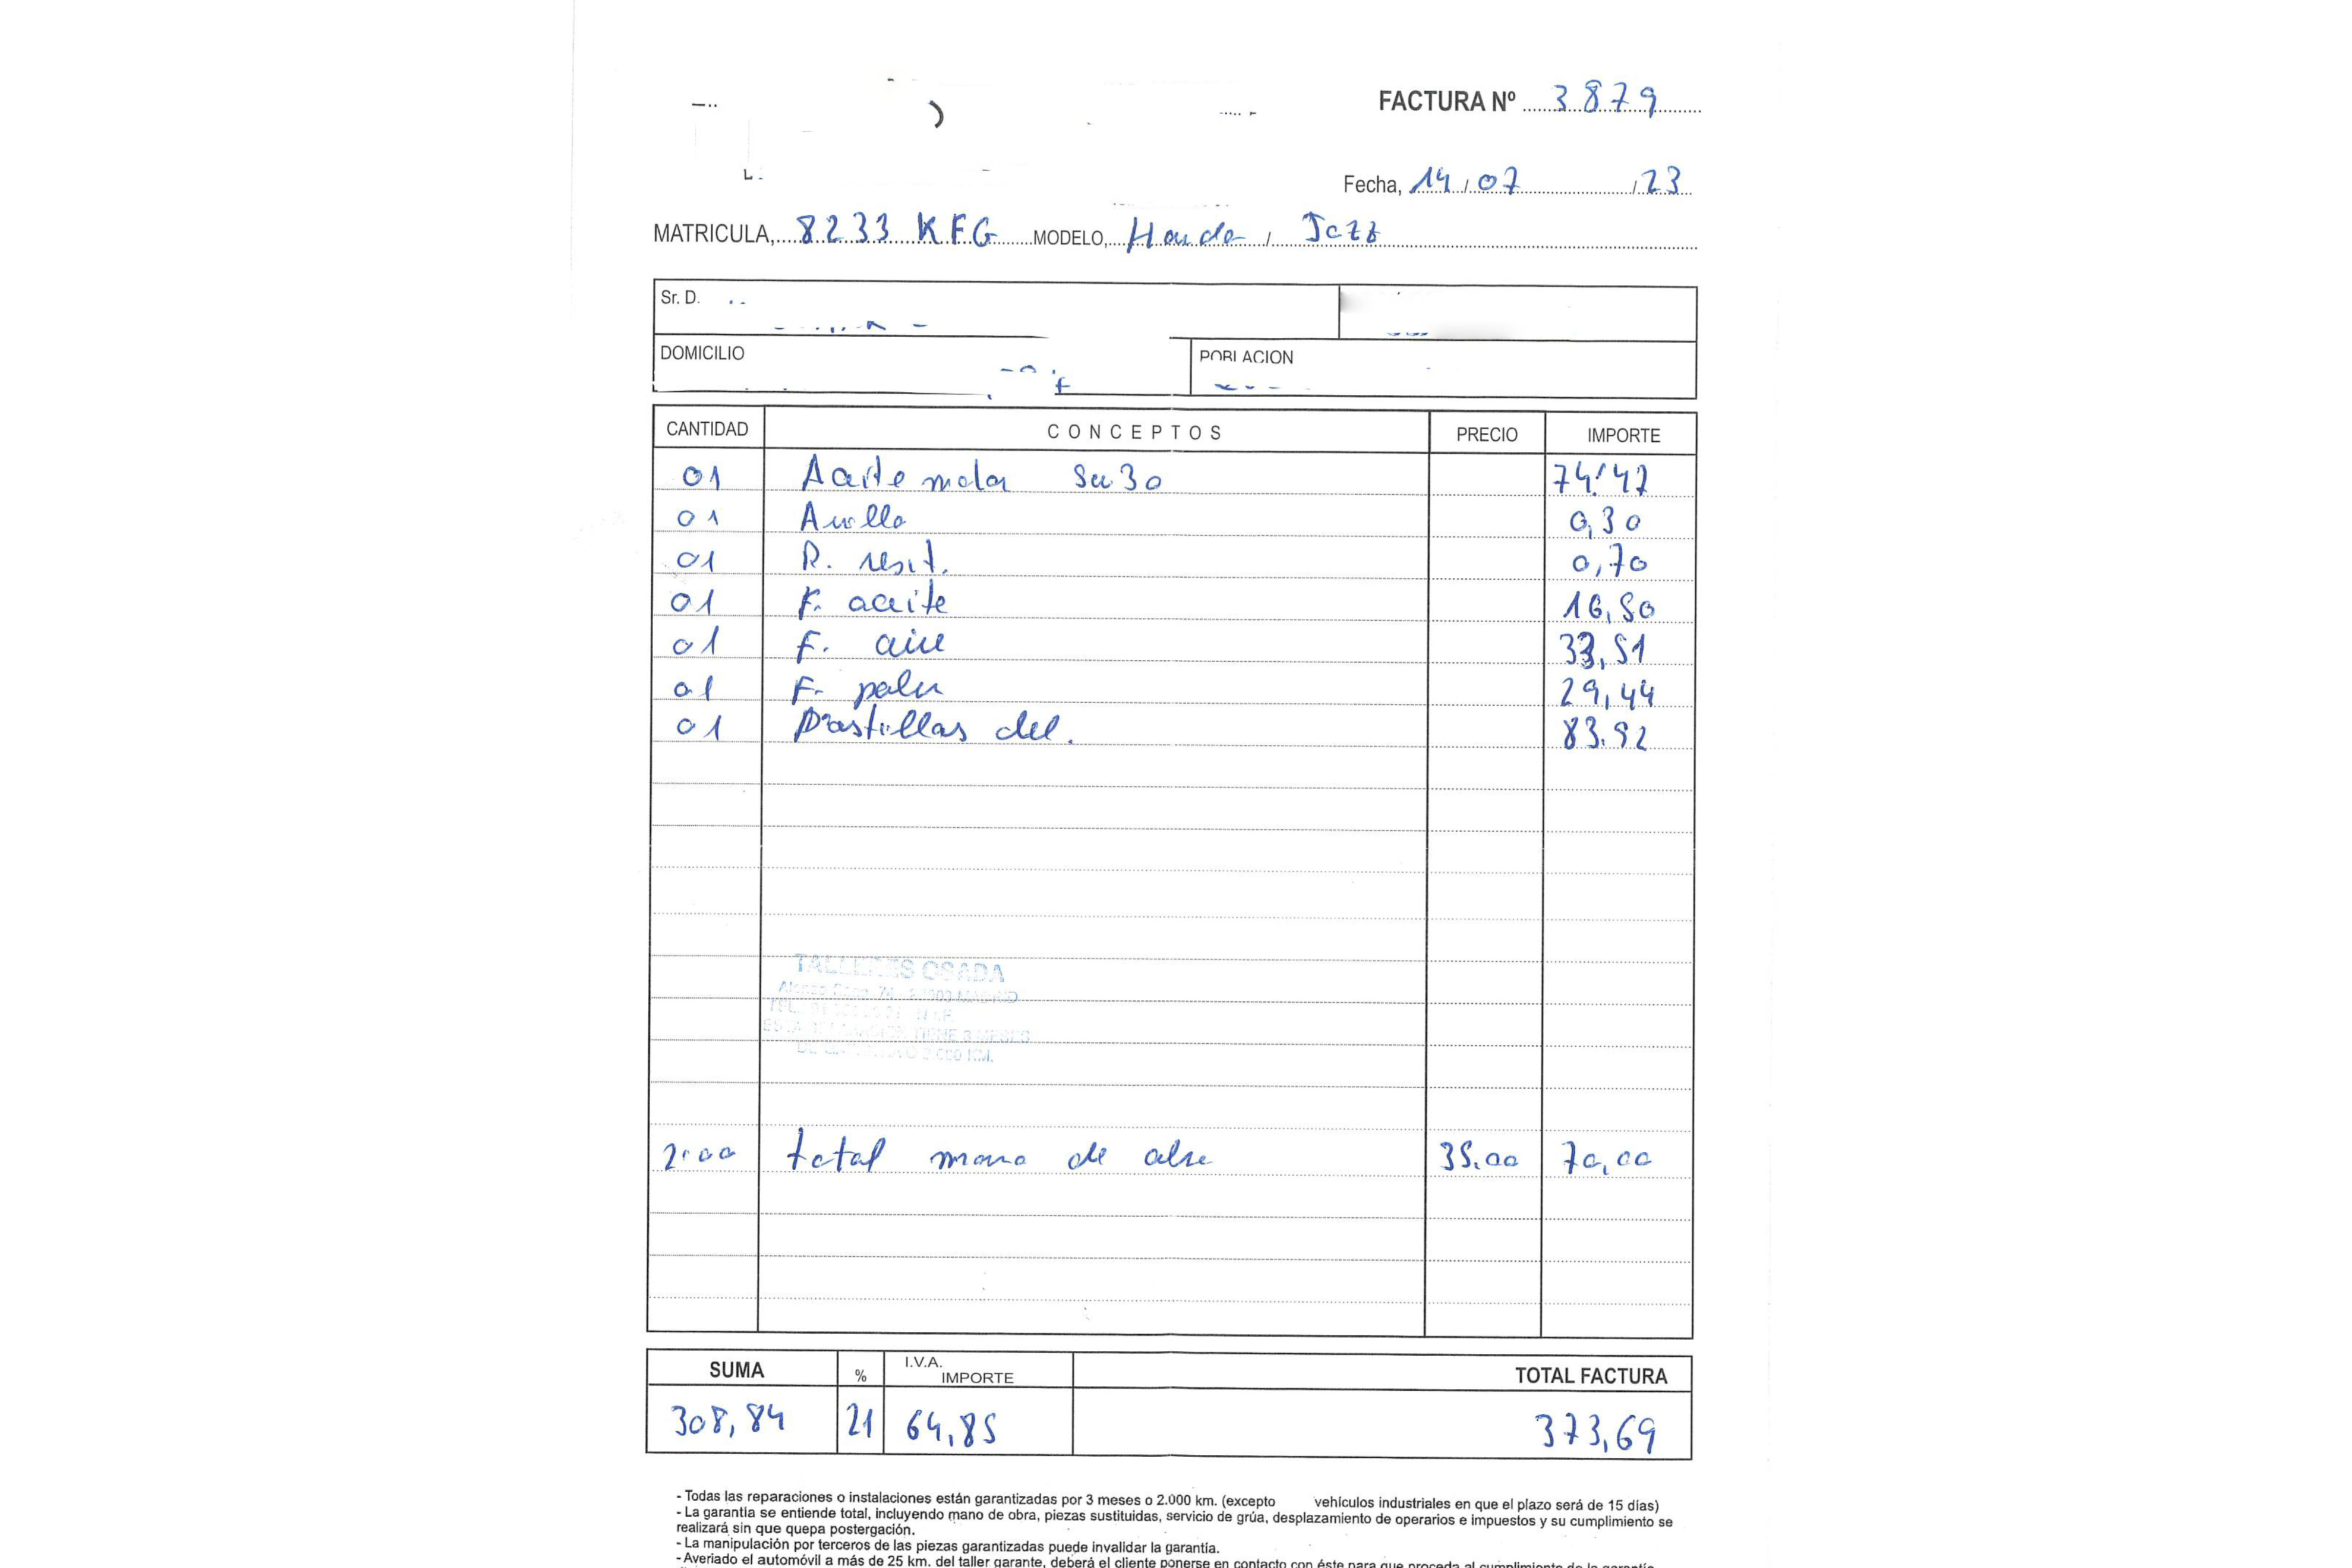 FACTURA Nº 3879
Fecha, 14 / 07 / 23
MATRICULA, 8233 KFG MODELO, Honda / Jazz
Sr. D.
DOMICILIO POBLACION
CANTIDAD CONCEPTOS PRECIO IMPORTE
01 Aceite motor 5w30 74'47
01 Anillo 0,30
01 R. resit. 0,70
01 F. aceite 16,50
01 F. aire 33,51
01 F. polen 29,44
01 Pastillas del. 83.92
TALLERES OSADA
MADRID
TIENE 3 MESES
2'00 total mano de obra 35.00 70,00
SUMA % I.V.A. IMPORTE TOTAL FACTURA
308,84 21 64,85 373,69
- Todas las reparaciones o instalaciones están garantizadas por 3 meses o 2.000 km. (excepto vehículos industriales en que el plazo será de 15 días)
- La garantía se entiende total, incluyendo mano de obra, piezas sustituidas, servicio de grúa, desplazamiento de operarios e impuestos y su cumplimiento se
realizará sin que quepa postergación.
- La manipulación por terceros de las piezas garantizadas puede invalidar la garantía.
- Averiado el automóvil a más de 25 km. del taller garante, deberá el cliente ponerse en contacto con éste para que proceda al cumplimiento de la garantía